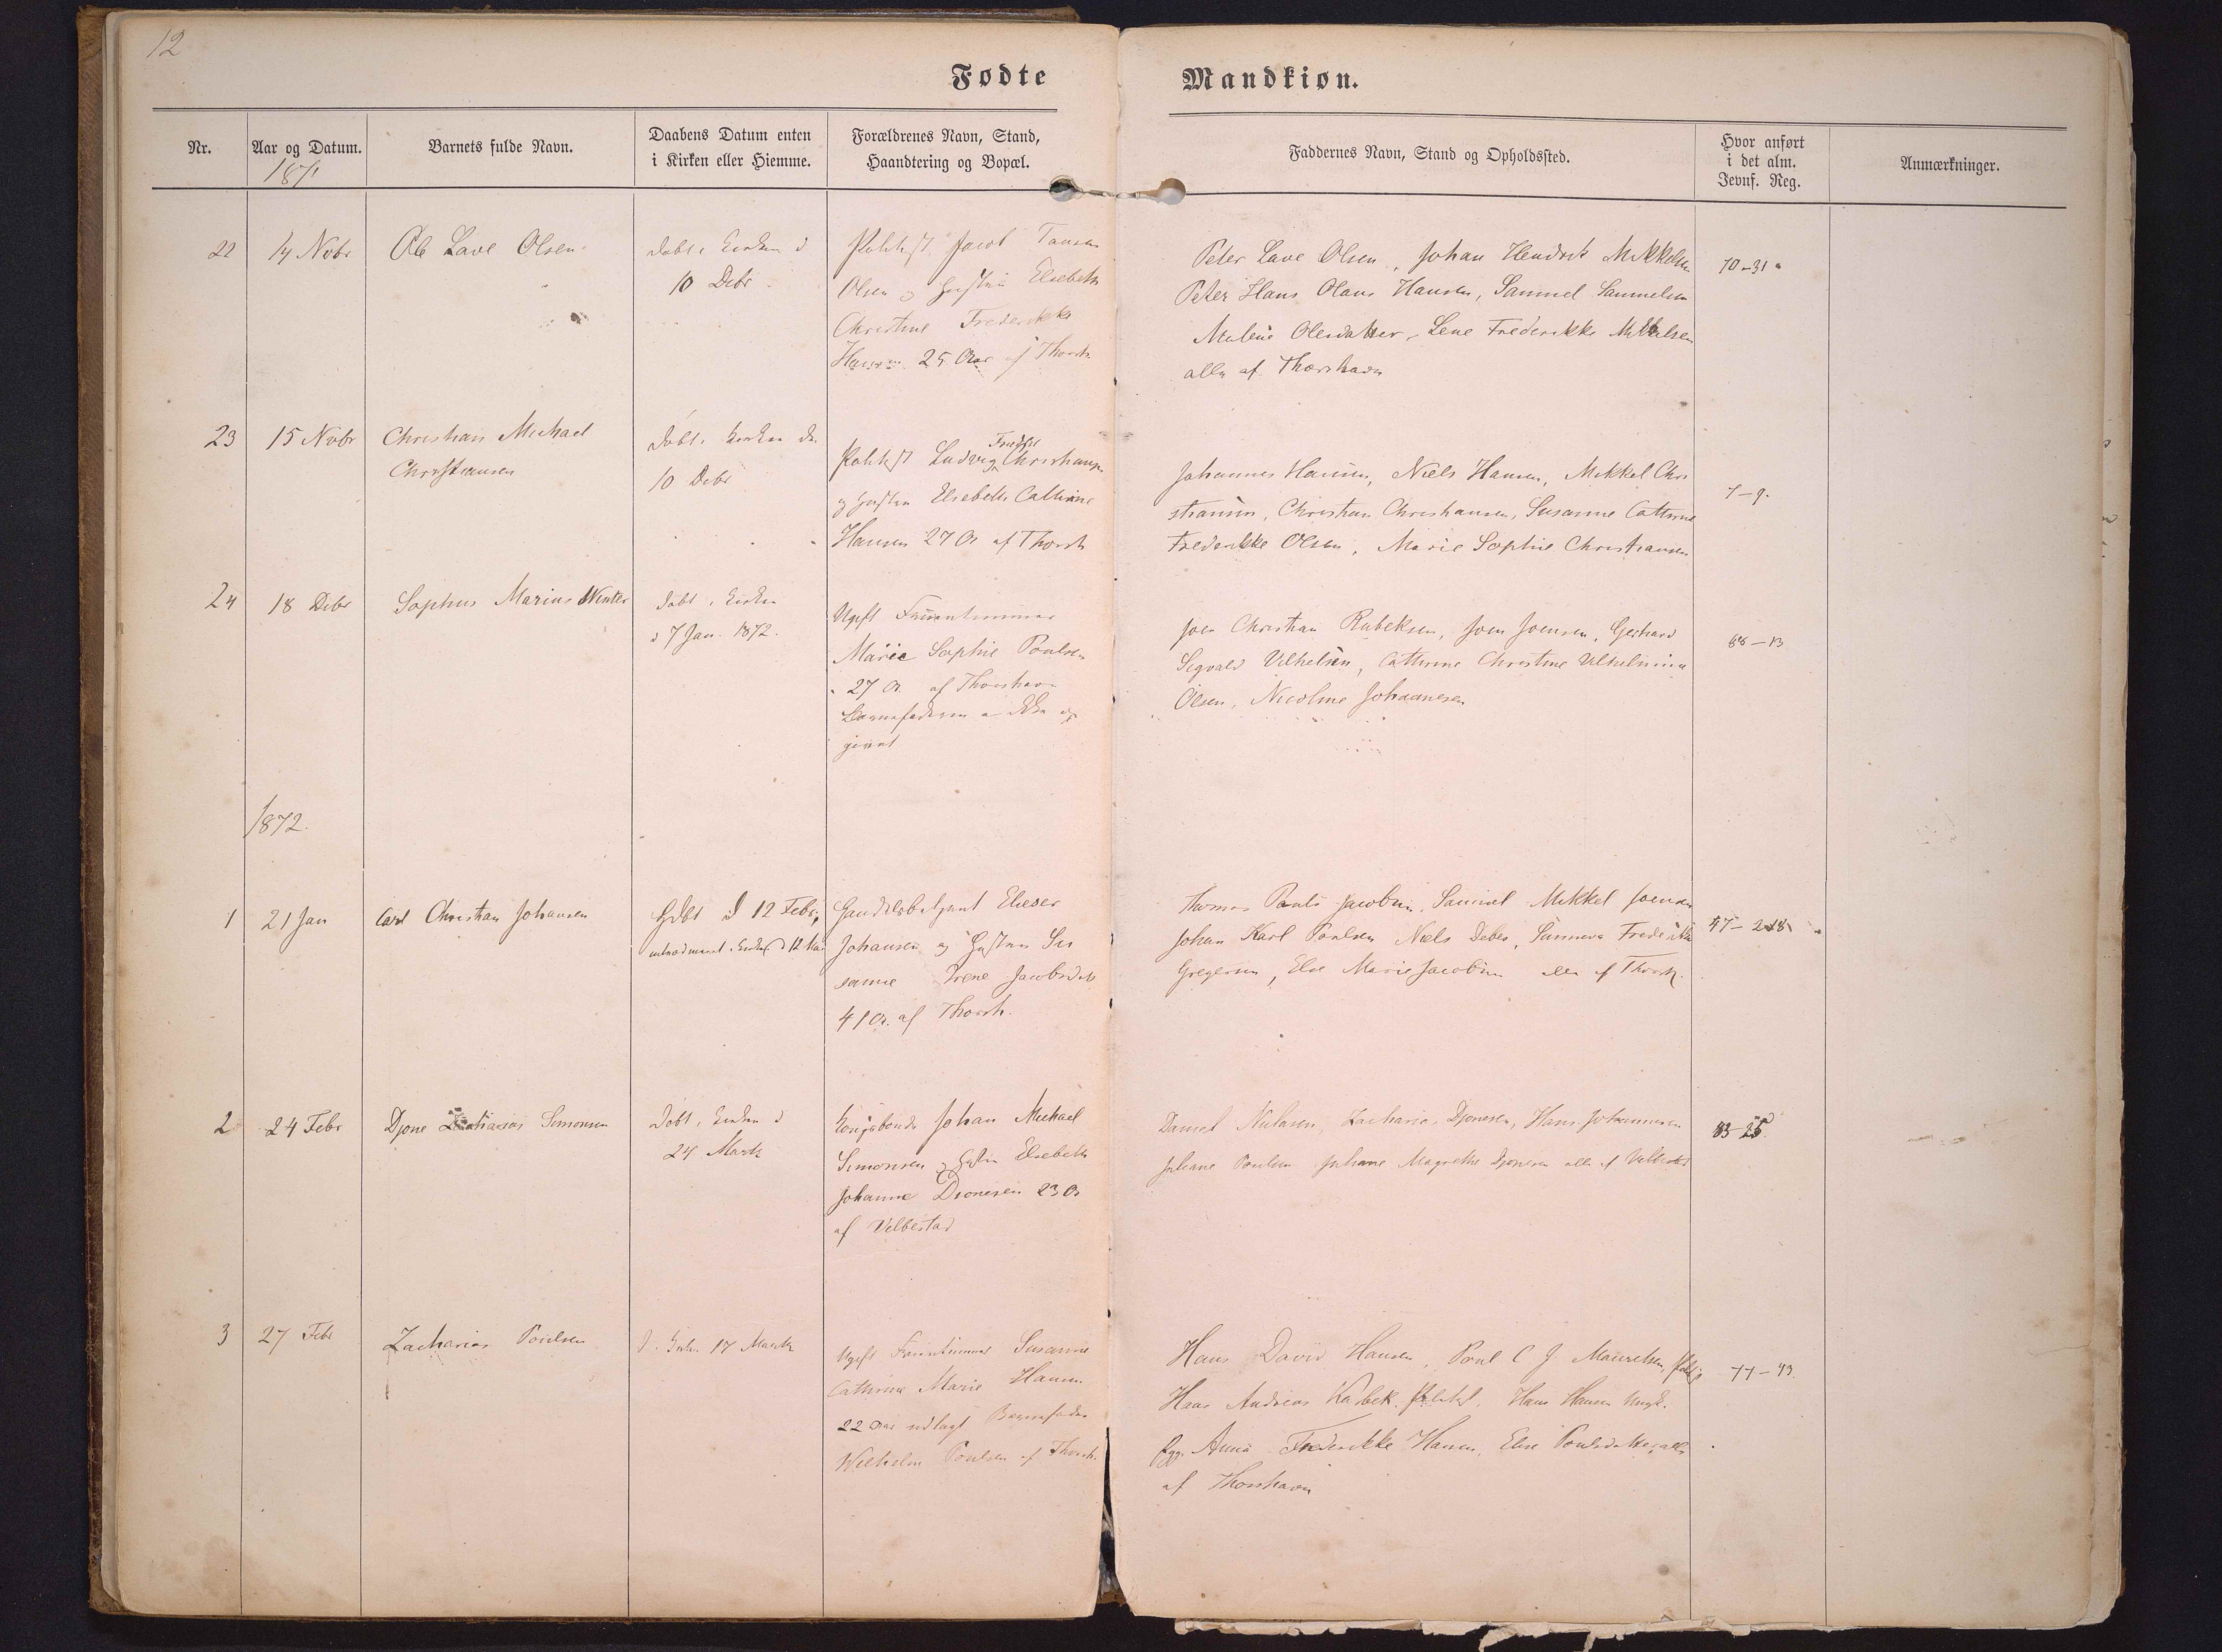 12
Fødte Mandkiøn.
Nr. Aar og Datum. Barnets fulde Navn. Daabens Datum enten i Kirken eller Hiemme. Forældrenes Navn, Stand, Haandtering og Bopæl. Faddernes Navn, Stand og Opholdssted. Hvor anført i det alm. Jevnf. Reg. Anmærkninger.
1871
22 14 Novbr Ole Lave Olsen
Døbt i Kirken d
10 Debr
Jacob
Olsen og Hustru Elsebeth
Christine Frederikke
Hansen 25 Aar af Thorsh
Peter Lave Olsen, Johan Hendrik Mikkelsen
Peter Hans Olaus Hansen, Samuel Samuelsen
Malene Olesdatter, Lene Frederikke Mikkelsen
alle af Thorshavn
70-31
23 15 Novbr Christian Michael
Christiansen
Døbt i Kirken den
10 Debr
Ludvig Christiansen
og Hustru Elsebeth Cathrine
Hansen 27 Ar af Thorsh
Johannes Hansen, Niels Hansen, Mikkel Chri
stiansen, Christian Christiansen, Susanne Cathrine
Frederikke Olsen, Marie Sophie Christiansen
7-9.
24 18 Debr Sophus Marius Winter
Døbt i Kirken
d 7 Jan. 1872.
Ugift Fruentimmer
Marie Sophie Poulsen
27 Ar. af Thorshavn
Barnefaderen er ikke op
givet
Joen Christian Rubeksen, Joen Joensen, Gerhard
Sigvald Vilhelsen, Cathrine Christine Vilhelmine
Olsen, Nicoline Johannesen
88-13
1872.
1 21 Jan Carl Christian Johansen
Hdbt d 12 Febr,
Handelsbetjent Elieser
Johansen og Hustru Su
sanne Irene Jacobsdatt
41 Ar. af Thorsh.
Thomas Pauli Jacobsen, Samuel Mikkel Joensen
Johan Karl Poulsen Niels Debes, Sunneva Frederikke
Gregersen, Else Marie Jacobsen alle af Thorsh.
47-
2 24 Febr Djone Zacharias Simonsen
Døbt i Kirken d
24 Marts
Kongsbonde Johan Michael
Simonsen og Hustru Elsebeth
Johanne Dionesen 23 Ar
af Velbestad
Daniel Nielasen, Zacharias Djonesen, Hans Johannesen
Juliane Poulsen Juliane Magrethe Djonesen alle af Velbestad
83-25
3 27 Febr Zacharias Poulsen
d. Kirken 17 Marts
Ugift Fruentimmer Susanne
Cathrine Marie Hansen
22 Aar udlagt Barnefader
Wilhelm Poulsen af Thorsh.
Hans David Hansen, Poul C J Mauritsen,
Hans Andreas Kasbek, Hans Hansen Ungk.
Pgp. Anna Frederikke Hansen, Else Poulsdatter, alle
af Thorshavn
77-43.